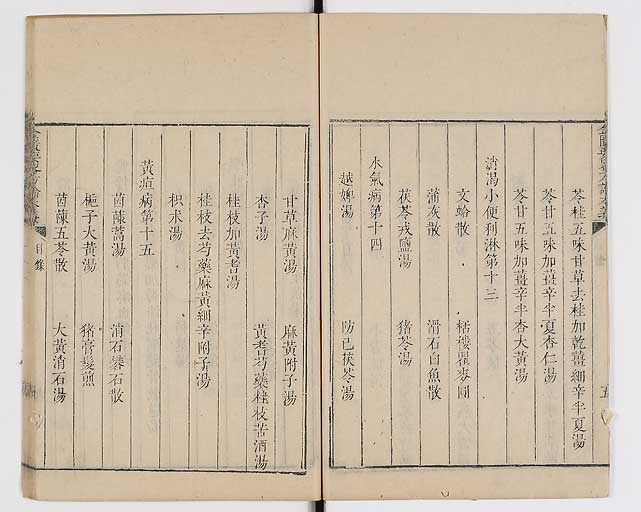 苓桂五味甘草去桂加乾薑細辛半夏湯
苓甘五味加薑辛半夏杏仁湯
苓甘五味加薑辛半杏大黃湯
消渴小便利淋第十三
文蛤散 栝樓瞿麥圓
蒲灰散 滑石白魚散
茯苓戎鹽湯 猪苓湯
水氣病第十四
越婢湯 防已茯苓湯
甘草麻黃湯 麻黃附子湯
杏子湯 黃耆芍藥桂枝苦酒湯
桂枝加黃耆湯
桂枝去芍藥麻黃細辛附子湯
枳朮湯
黃疸病第十五
茵蔯蒿湯 消石礬石散
梔子大黃湯 猪膏髮煎
茵蔯五苓散 大黃消石湯
目錄
五